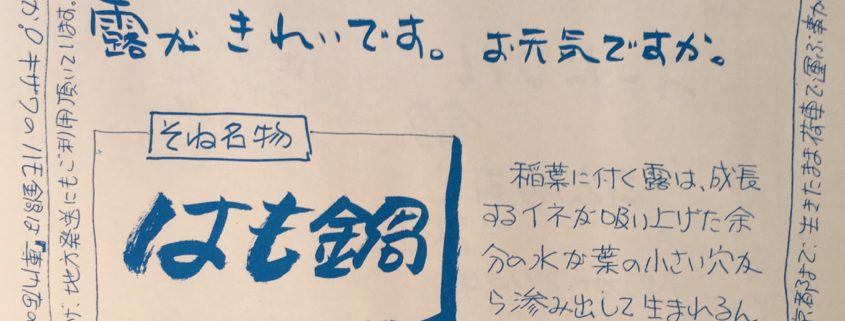 露がきれいです。お元気ですか。
そね名物
はも鍋
稲葉に付く露は、成長
するイネが吸い上げた余
分の水が葉の小さい穴か
ら滲み出して生まれるん
京都まで、生きたまま荷車で運ぶ事が
地方発送にもご利用頂いています。
か。キザワのハモ鍋は『専門店の